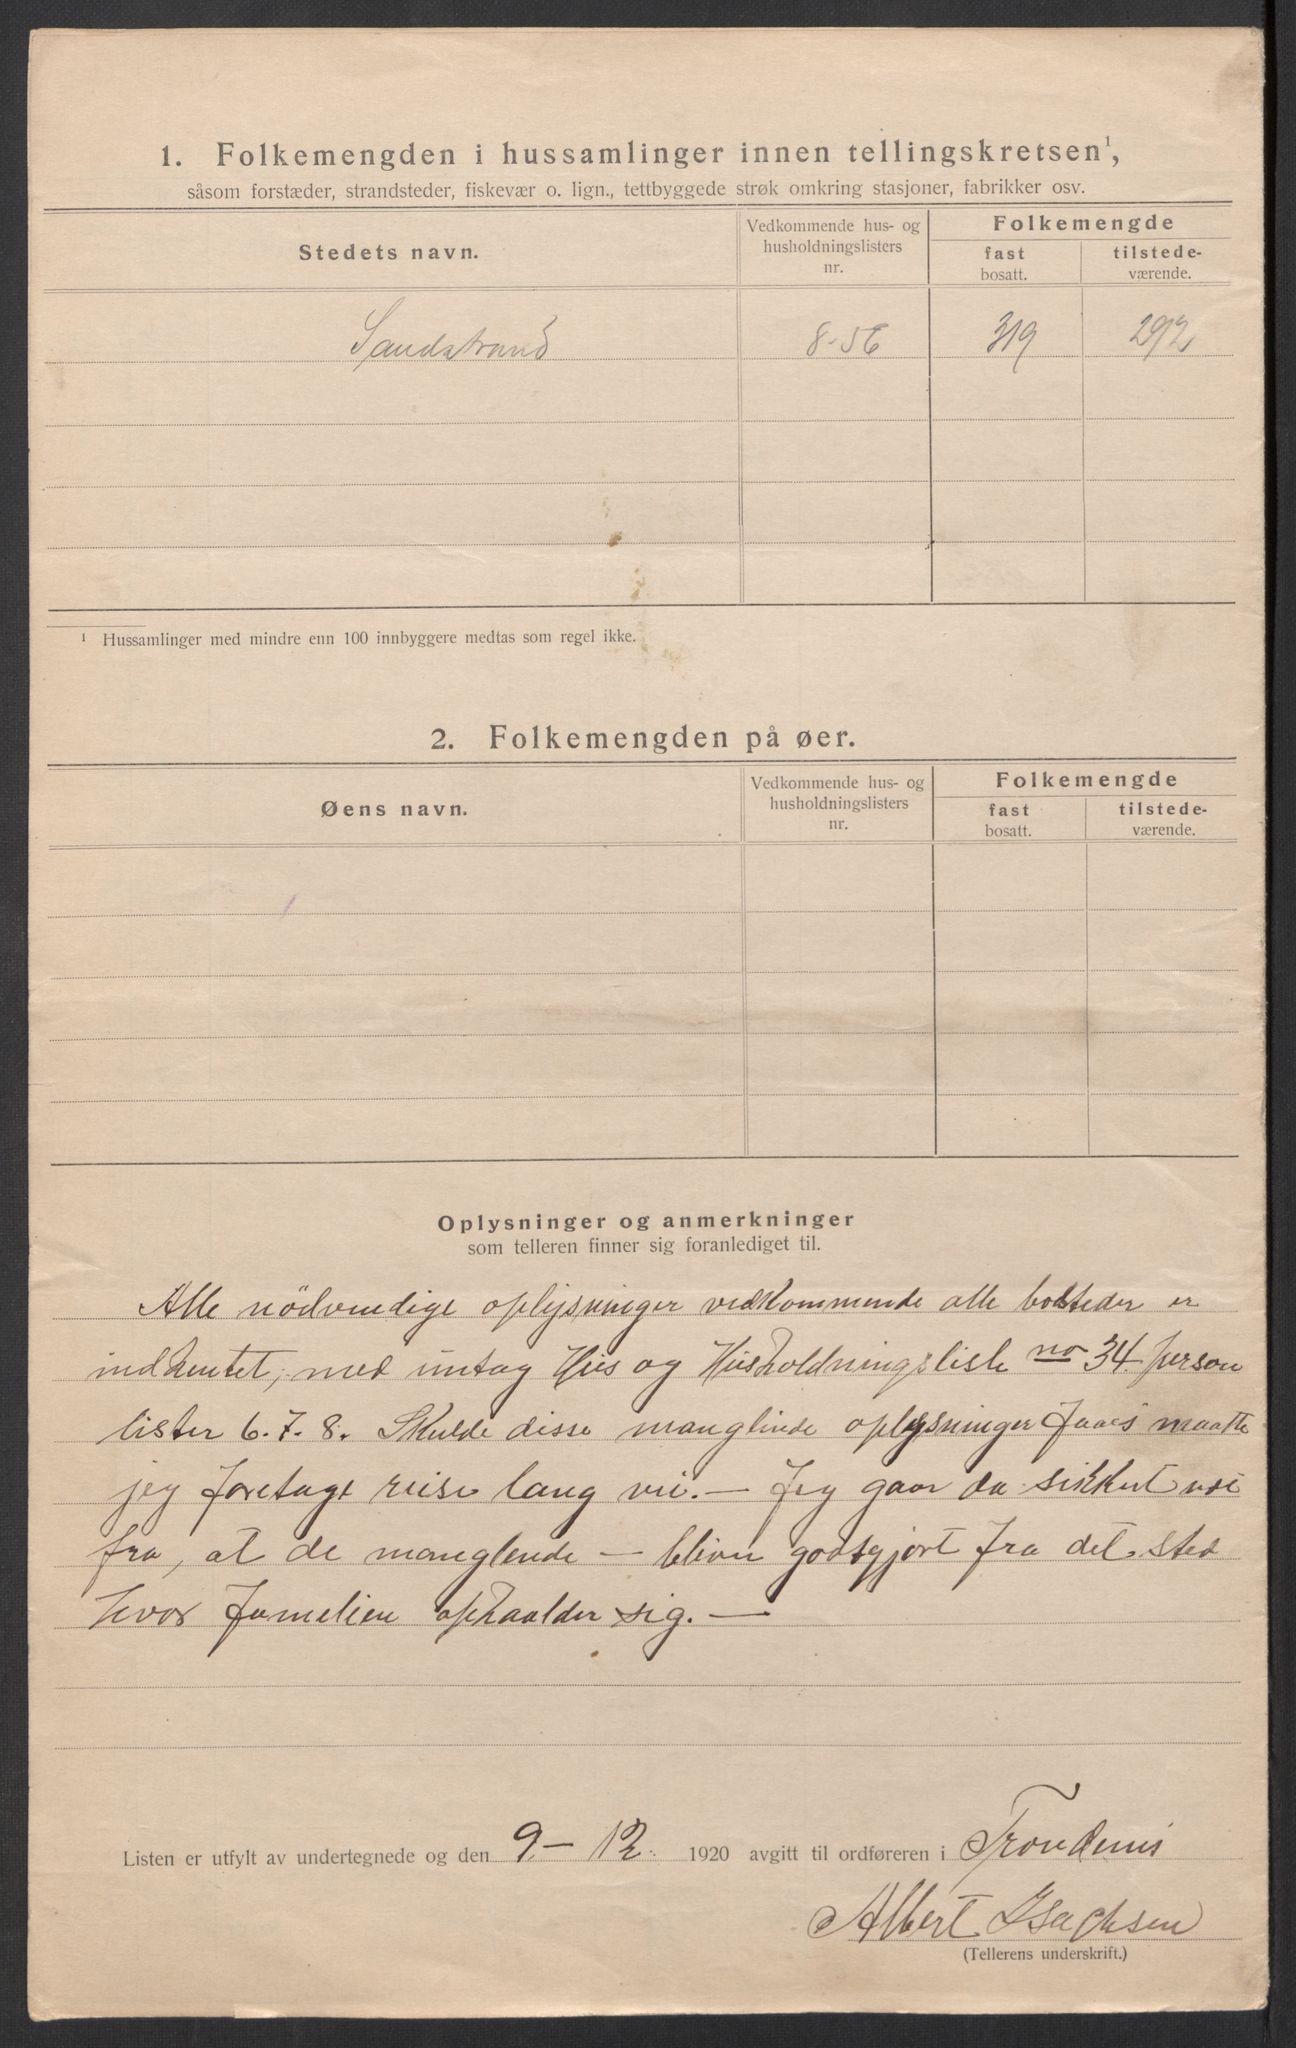 1. Folkemengden i hussamlinger innen tellingskretsen¹,
såsom forstæder, strandsteder, fiskevær o. lign., tettbyggede strøk omkring stasjoner, fabrikker osv.
Stedets navn.
Vedkommende hus- og
husholdningslisters
nr.
Folkemengde
fast
bosatt.
tilstede-
værende.
Sandstrand 8-56 319 292
¹ Hussamlinger med mindre enn 100 innbyggere medtas som regel ikke.
2. Folkemengden på øer.
Øens navn.
Vedkommende hus- og
husholdningslisters
nr.
Folkemengde
fast
bosatt.
tilstede-
værende.
Oplysninger og anmerkninger
som telleren finner sig foranlediget til.
Alle nödvendige oplysninger vedkommende alle bosteder er
indhentet, med untag Hus og Husholdningsliste no 34. person
lister 6.7.8. Skulde disse manglende oplysninger faaes maatte
jeg foretage reise lang vei. – Jeg gaar da sikkert
fra, at de manglende – bliver godtgjort fra det sted
hvor familien opholder sig. –
Listen er utfylt av undertegnede og den 9 – 12. 1920 avgitt til ordføreren i Trondenes
Albert Isachsen
(Tellerens underskrift.)